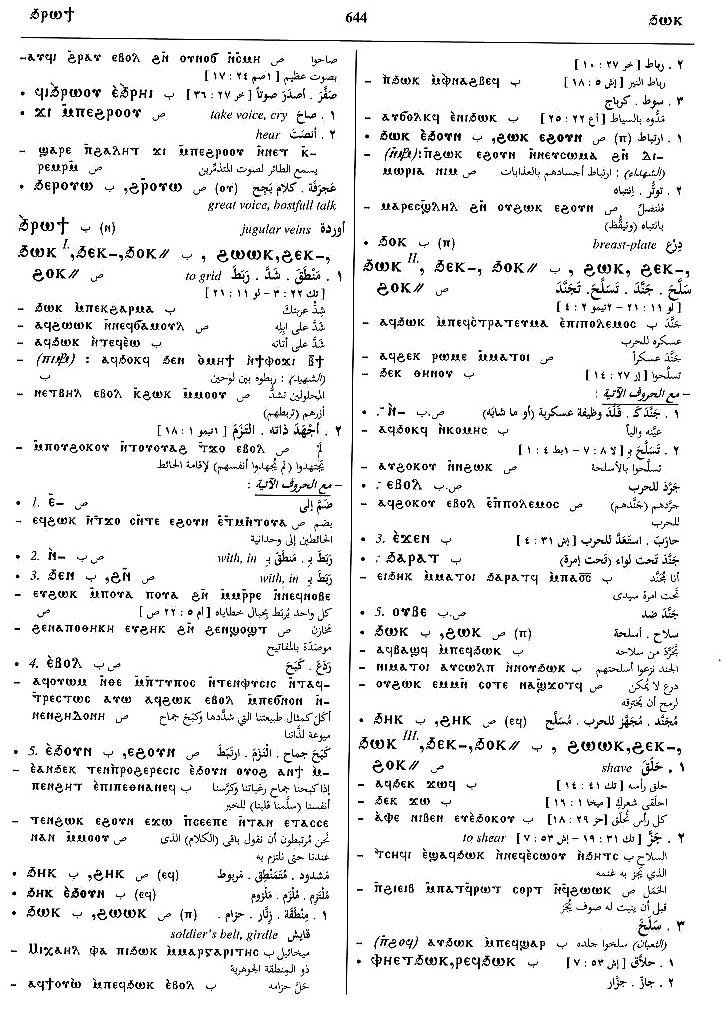 ϧⲣⲱϯ 644 ϧⲱⲕ
ⲁⲩϥⲓ ϩⲣⲁⲩ ⲉⲃⲟⲗ ϩⲛ̄ ⲟⲩⲛⲟϭ ⲛ̄ⲥⲙⲏ ص صاحوا
بصوت عظيم [١صم ٢٤ : ١٧]
• ϥⲓϧⲣⲱⲟⲩ ⲉ̀ϧⲣⲏⲓ ب صَفَّرَ . أصدَرَ صوتاً [خر ٢٧ : ٣٦]
• ϫⲓ ⲙ̄ⲡⲉϩⲣⲟⲟⲩ ص take voice, cry ١ . صاحَ
hear ٢ . أنصَتَ
– ϣⲁⲣⲉ ⲡ̄ϩⲁⲗⲏⲧ ϫⲓ ⲙ̄ⲡⲉϩⲣⲟⲟⲩ ⲛ̄ⲛⲉⲧ ⲕ̄-
ⲣⲉⲙⲣⲙ̄ ص يسمع الطائر لصوت المتذمِّرين
great voice, bostfull talk
ϧⲣⲱϯ ب (ⲛ) jugular veins أوردة
ϧⲱⲕ I, ϧⲉⲕ-, ϧⲟⲕ// ب , ϩⲱⲱⲕ, ϩⲉⲕ-,
ϩⲟⲕ// ص to grid ١ . مَنْطَقَ . شَدَّ . رَبَطَ
[تك ٢٢ : ٣ – لو ١١ : ٢١]
– ϧⲱⲕ ⲙⲡⲉⲕϩⲁⲣⲙⲁ ب شِدّ عربتك
– ⲁϥϩⲱⲱⲕ ⲛ̄ⲛⲉϥϭⲁⲙⲟⲩⲗ ص شَدَّ على إبله
– ⲁϥϧⲱⲕ ⲛ̀ⲧⲉϥⲉ̀ⲱ ب شَدَّ على أتانه
(الشهيد) : ربطوه بين لوحين
ب
– ⲛⲉⲧⲃⲏⲗ ⲉⲃⲟⲗ ⲕ̄ϩⲱⲕ ⲙ̄ⲙⲟⲟⲩ ص المحلولين تشدّ
أزرهم (تربطهم)
٢ . أجْهَدَ ذاته . التَزَمَ [١تيمو ١ : ١٨]
– ⲙ̄ⲡⲟⲩϩⲟⲕⲟⲩ ⲛ̄ⲧⲟⲩⲧⲁϩ ⲧ̄ϫⲟ ⲉⲃⲟⲗ ص لم
يجتهدوا (لم يُجهدوا أنفسهم) لإقامة الحائط
– مع الحروف الآتية :
• 1. ⲉ̄- ص ضَمَّ إلى
– ⲉϥϩⲱⲕ ⲛ̄ⲧ̄ϫⲟ ⲥⲛ̄ⲧⲉ ⲉϩⲟⲩⲛ ص يضم
الحائطين إلى وحدانية
• 2. ⲛ̀- ص ب with, in رَبَطَ بِـ . مَنطَقَ بِـ
• 3. ϧⲉⲛ ب , ϩⲛ̄ ص with, in رَبَطَ بِـ
– ⲉⲩϩⲱⲕ ⲙ̄ⲡⲟⲩⲁ ⲡⲟⲩⲁ ϩⲛ̄ ⲙⲙ̄ⲣⲣⲉ ⲛ̄ⲛⲉϥⲛⲟⲃⲉ
كل واحد يُربَط بحبال خطاياه [أم ٥ : ٢٢ ص] ص
– ϩⲉⲛⲁⲡⲟⲑⲏⲕⲏ ⲉⲩϩⲏⲕ ϩⲛ̄ ϩⲉⲛϣⲟϣⲧ ص مخازن
موصَدَة بالمفاتيح
• 4. ⲉ̀ⲃⲟⲗ ص ب رَدَعَ . كَبَحَ
أكل كمثال طبيعتنا التي شدَّدها وكَبَحَ جماح
ميوعة لذَّاتنا
• 5. ⲉ̀ϧⲟⲩⲛ ب , ⲉϩⲟⲩⲛ ص كَبَحَ جماح . التَزَمَ . ارتَبَطَ
– ⲉ̀ⲁⲛϧⲉⲕ ⲧⲉⲛⲡⲣⲟϩⲉⲣⲉⲥⲓⲥ ⲉ̀ϧⲟⲩⲛ ⲟⲩⲟϩ ⲁⲛϯ ⲙ̀-
ⲡⲉⲛϩⲏⲧ ⲉ̀ⲡⲓⲡⲉⲑⲛⲁⲛⲉϥ ب إذا كبحنا جماح رغباتنا وكرَّسنا
أنفسنا (سلَّمنا قلبنا) للخير
– ⲧⲉⲛϩⲱⲕ ⲉϩⲟⲩⲛ ⲉϫⲱ ⲡ̄ⲥⲉⲉⲡⲉ ⲛ̄ⲧⲁⲛ ⲉⲧⲁⲥⲥⲉ
ⲛⲁⲛ ⲙ̄ⲙⲟⲟⲩ ص نحن مُرتبطون أن نقول باقي (الكلام) الذي
عندنا حتى نلتزم به
• ϧⲏⲕ ب , ϩⲏⲕ ص (eq) مَشدود . مُتَمَنطِق . مَربوط
• ϧⲏⲕ ⲉ̀ϧⲟⲩⲛ ب (eq) مُلتَزِم . مُلزَم . مَلزوم
• ϧⲱⲕ ب , ϩⲱⲱⲕ ص (ⲡ) ١ . مِنطَقَة . زِنَّار . حزام .
soldier's belt, girdle قايش
– Ⲙⲓⲭⲁⲏⲗ ⲫⲁ ⲡⲓϧⲱⲕ ⲙ̀ⲙⲁⲣⲅⲁⲣⲓⲧⲏⲥ ب ميخائيل
ذو المنطقة الجوهرية
– ⲁϥϯⲟⲩⲱ̀ ⲙ̀ⲡⲉϥϧⲱⲕ ⲉⲃⲟⲗ ب حَلَّ حزامه
٢ . رِباط [خر ٢٧ : ١٠]
– ⲡ̀ϧⲱⲕ ⲙ̀ⲫⲛⲁϩⲃⲉϥ ب رباط النير [إش ٥ : ١٨]
٣ . سوط . كرباج
– ⲁⲩϭⲟⲗⲕϥ ⲉ̀ⲛⲓϧⲱⲕ ب مَدُّوه بالسياط [أع ٢٢ : ٢٥]
• ϧⲱⲕ ⲉ̀ϧⲟⲩⲛ ب , ϩⲱⲕ ⲉϩⲟⲩⲛ ص (ⲡ) ١ . ارتباط
ⲙⲱⲣⲓⲁ ⲛⲓⲙ ص (الشهداء) : ارتباط أجسادهم بالعذابات
٢ . توتُّر . إنتباه
– ⲙⲁⲣⲉⲥϣ̄ⲗⲏⲗ ϩⲛ̄ ⲟⲩϩⲱⲕ ⲉϩⲟⲩⲛ ص فلتصلِّ
بانتباه (وتيقُّظ)
• ϧⲟⲕ ب (ⲡ) breast-plate دِرْع
ϧⲱⲕ II, ϧⲉⲕ-, ϧⲟⲕ// ب , ϩⲱⲕ, ϩⲉⲕ-,
ϩⲟⲕ// ص سَلَّحَ . جَنَّدَ . تَسَلَّحَ . تَجَنَّدَ
[لو ١١ : ٢١ – ٢تيمو ٢ : ٤]
– ⲁϥϧⲱⲕ ⲙ̀ⲡⲉϥⲥ̀ⲧⲣⲁⲧⲉⲩⲙⲁ ⲉ̀ⲡⲓⲡⲟⲗⲉⲙⲟⲥ ب جَنَّدَ
عسكره للحرب
– ⲁϥϩⲉⲕ ⲣⲱⲙⲉ ⲙ̄ⲙⲁⲧⲟⲓ ص جَنَّدَ عسكراً
– ϧⲉⲕ ⲑⲏⲛⲟⲩ ب تسلَّحوا [إر ٢٧ : ١٤]
– مع الحروف الآتية :
ⲛ̀- ص.ب ١ . جَنَّدَ كـ . قَلَّدَ وظيفة عسكرية (أو ما شابه)
– ⲁϥϧⲟⲕϥ ⲛ̀ⲕⲟⲙⲏⲥ ب عيَّنه والياً
٢ . تَسَلَّحَ بِـ [لا ٨ : ٧ – ١بط ٤ : ١]
– ⲁⲩϩⲟⲕⲟⲩ ⲛ̄ⲛϩⲱⲕ ص تسلَّحوا بالأسلحة
• : ⲉⲃⲟⲗ ص.ب جَرَّدَ للحرب
– ⲁϥϩⲟⲕⲟⲩ ⲉⲃⲟⲗ ⲉⲡ̄ⲡⲟⲗⲉⲙⲟⲥ ص جرَّدهم (جَنَّدهم)
للحرب
• 3. ⲉ̀ϫⲉⲛ ب حارَبَ . استَعَدَّ للحرب [إش ٣١ : ٤]
• : ϧⲁⲣⲁⲧ ب جَنَّدَ تَحت لواء (تحت إمرة)
– ⲉⲓϧⲏⲕ ⲙ̀ⲙⲁⲧⲟⲓ ϧⲁⲣⲁⲧϥ ⲙ̀ⲡⲁⲟ̅ⲥ̅ ب أنا مُجَنَّد
تحت امرة سيدى
• 5. ⲟⲩⲃⲉ ص.ب جَنَّدَ ضد
• ϧⲱⲕ ب , ϩⲱⲕ ص (ⲡ) سلاح . أسلحة
– ⲁϥⲃⲁϣϥ ⲙ̀ⲡⲉϥϧⲱⲕ ب تَجَرَّدَ من سلاحه
– ⲛⲓⲙⲁⲧⲟⲓ ⲁⲩⲥⲱⲗⲡ ⲛ̀ⲛⲟⲩϧⲱⲕ ب الجند نزعوا أسلحتهم
– ⲟⲩϩⲱⲕ ⲉⲙⲙⲛ̄ ⲥⲟⲧⲉ ⲛⲁϣ̄ϫⲟⲧϥ ص درع لا يُمكن
لرمح أن يخترقه
• ϧⲏⲕ ب , ϩⲏⲕ ص (eq) مُجَنَّد . مُجَهَّز للحرب . مُسَلَّح
ϧⲱⲕ III, ϧⲉⲕ-, ϧⲟⲕ// ب , ϩⲱⲱⲕ, ϩⲉⲕ-,
ϩⲟⲕ// ص shave ١ . حَلَقَ
– ⲁϥϧⲉⲕ ϫⲱϥ ب حلق رأسه [تك ٤١ : ١٤]
– ϧⲉⲕ ϫⲱ ب احلقي شعرك [ميخا ١ : ١٦]
– ⲁ̀ⲫⲉ ⲛⲓⲃⲉⲛ ⲉⲩⲉ̀ϧⲟⲕⲟⲩ ب كل رأس تُحلَق [حز ٢٩ : ١٨]
to shear ٢ . جَزَّ [تك ٣١ : ١٩ – إش ٥٣ : ٧]
– ⲧ̀ⲥⲏϥⲓ ⲉ̀ϣⲁϥϧⲱⲕ ⲛ̀ⲛⲉϥⲉ̀ⲥⲱⲟⲩ ⲛ̀ϧⲏⲧⲥ ب السلاح
الذي يَجُز به غنمه
– ⲡ̄ϩⲓⲉⲓⲃ ⲙ̄ⲡⲁⲧϥ̄ⲣⲱⲧ ⲥⲟⲣⲧ ⲛ̄ϥϩⲱⲱⲕ ص الحَمَل
قبل أن ينبت له صوف يُجَز
٣ . سَلَخَ
– (ⲡ̀ϩⲟϥ) ⲁⲩϧⲱⲕ ⲙ̀ⲡⲉϥϣⲁⲣ ب (الثعبان) سلخوا جلده
• ⲫⲏⲉⲧϧⲱⲕ, ⲣⲉϥϧⲱⲕ ب ١ . حلاَّق [إش ٥٣ : ٧]
٢ . جازّ . جزَّار